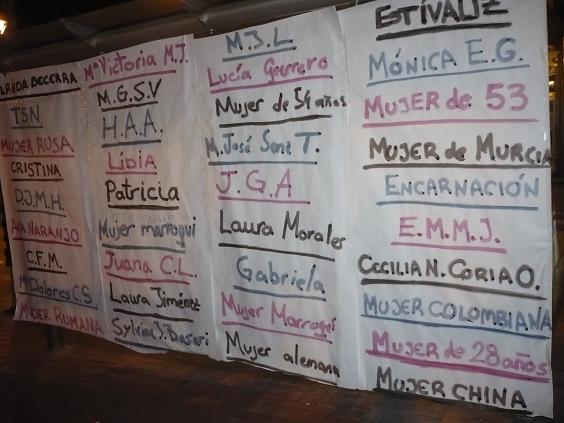 BECERRA
TSN
MUJER RUSA
CRISTINA
D.J.M.H.
ANA NARANJO
C.F.M.
Mª Dolores C.S.
MUJER RUMANA
Mª Victoria M.J.
M.G.S.V
H.A.A.
LidiA
Patricia
Mujer marroqui
Juana C.L.
Laura Jiménez
Sylvina J. Bassari
M.J.L.
Lucía Guerrero
Mujer de 54 años
M. José Sanz T.
J.G.A
Laura Morales
Gabriela
Mujer Marroqui
Mujer alemana
ESTÍVALIZ
MÓNICA E.G.
MUJER de 53
MUJER de MURCIA
ENCARNACIÓN
E.M.M.J.
CECILIA N. CORIA O.
MUJER COLOMBIANA
MUJER de 28 años
MUJER CHINA